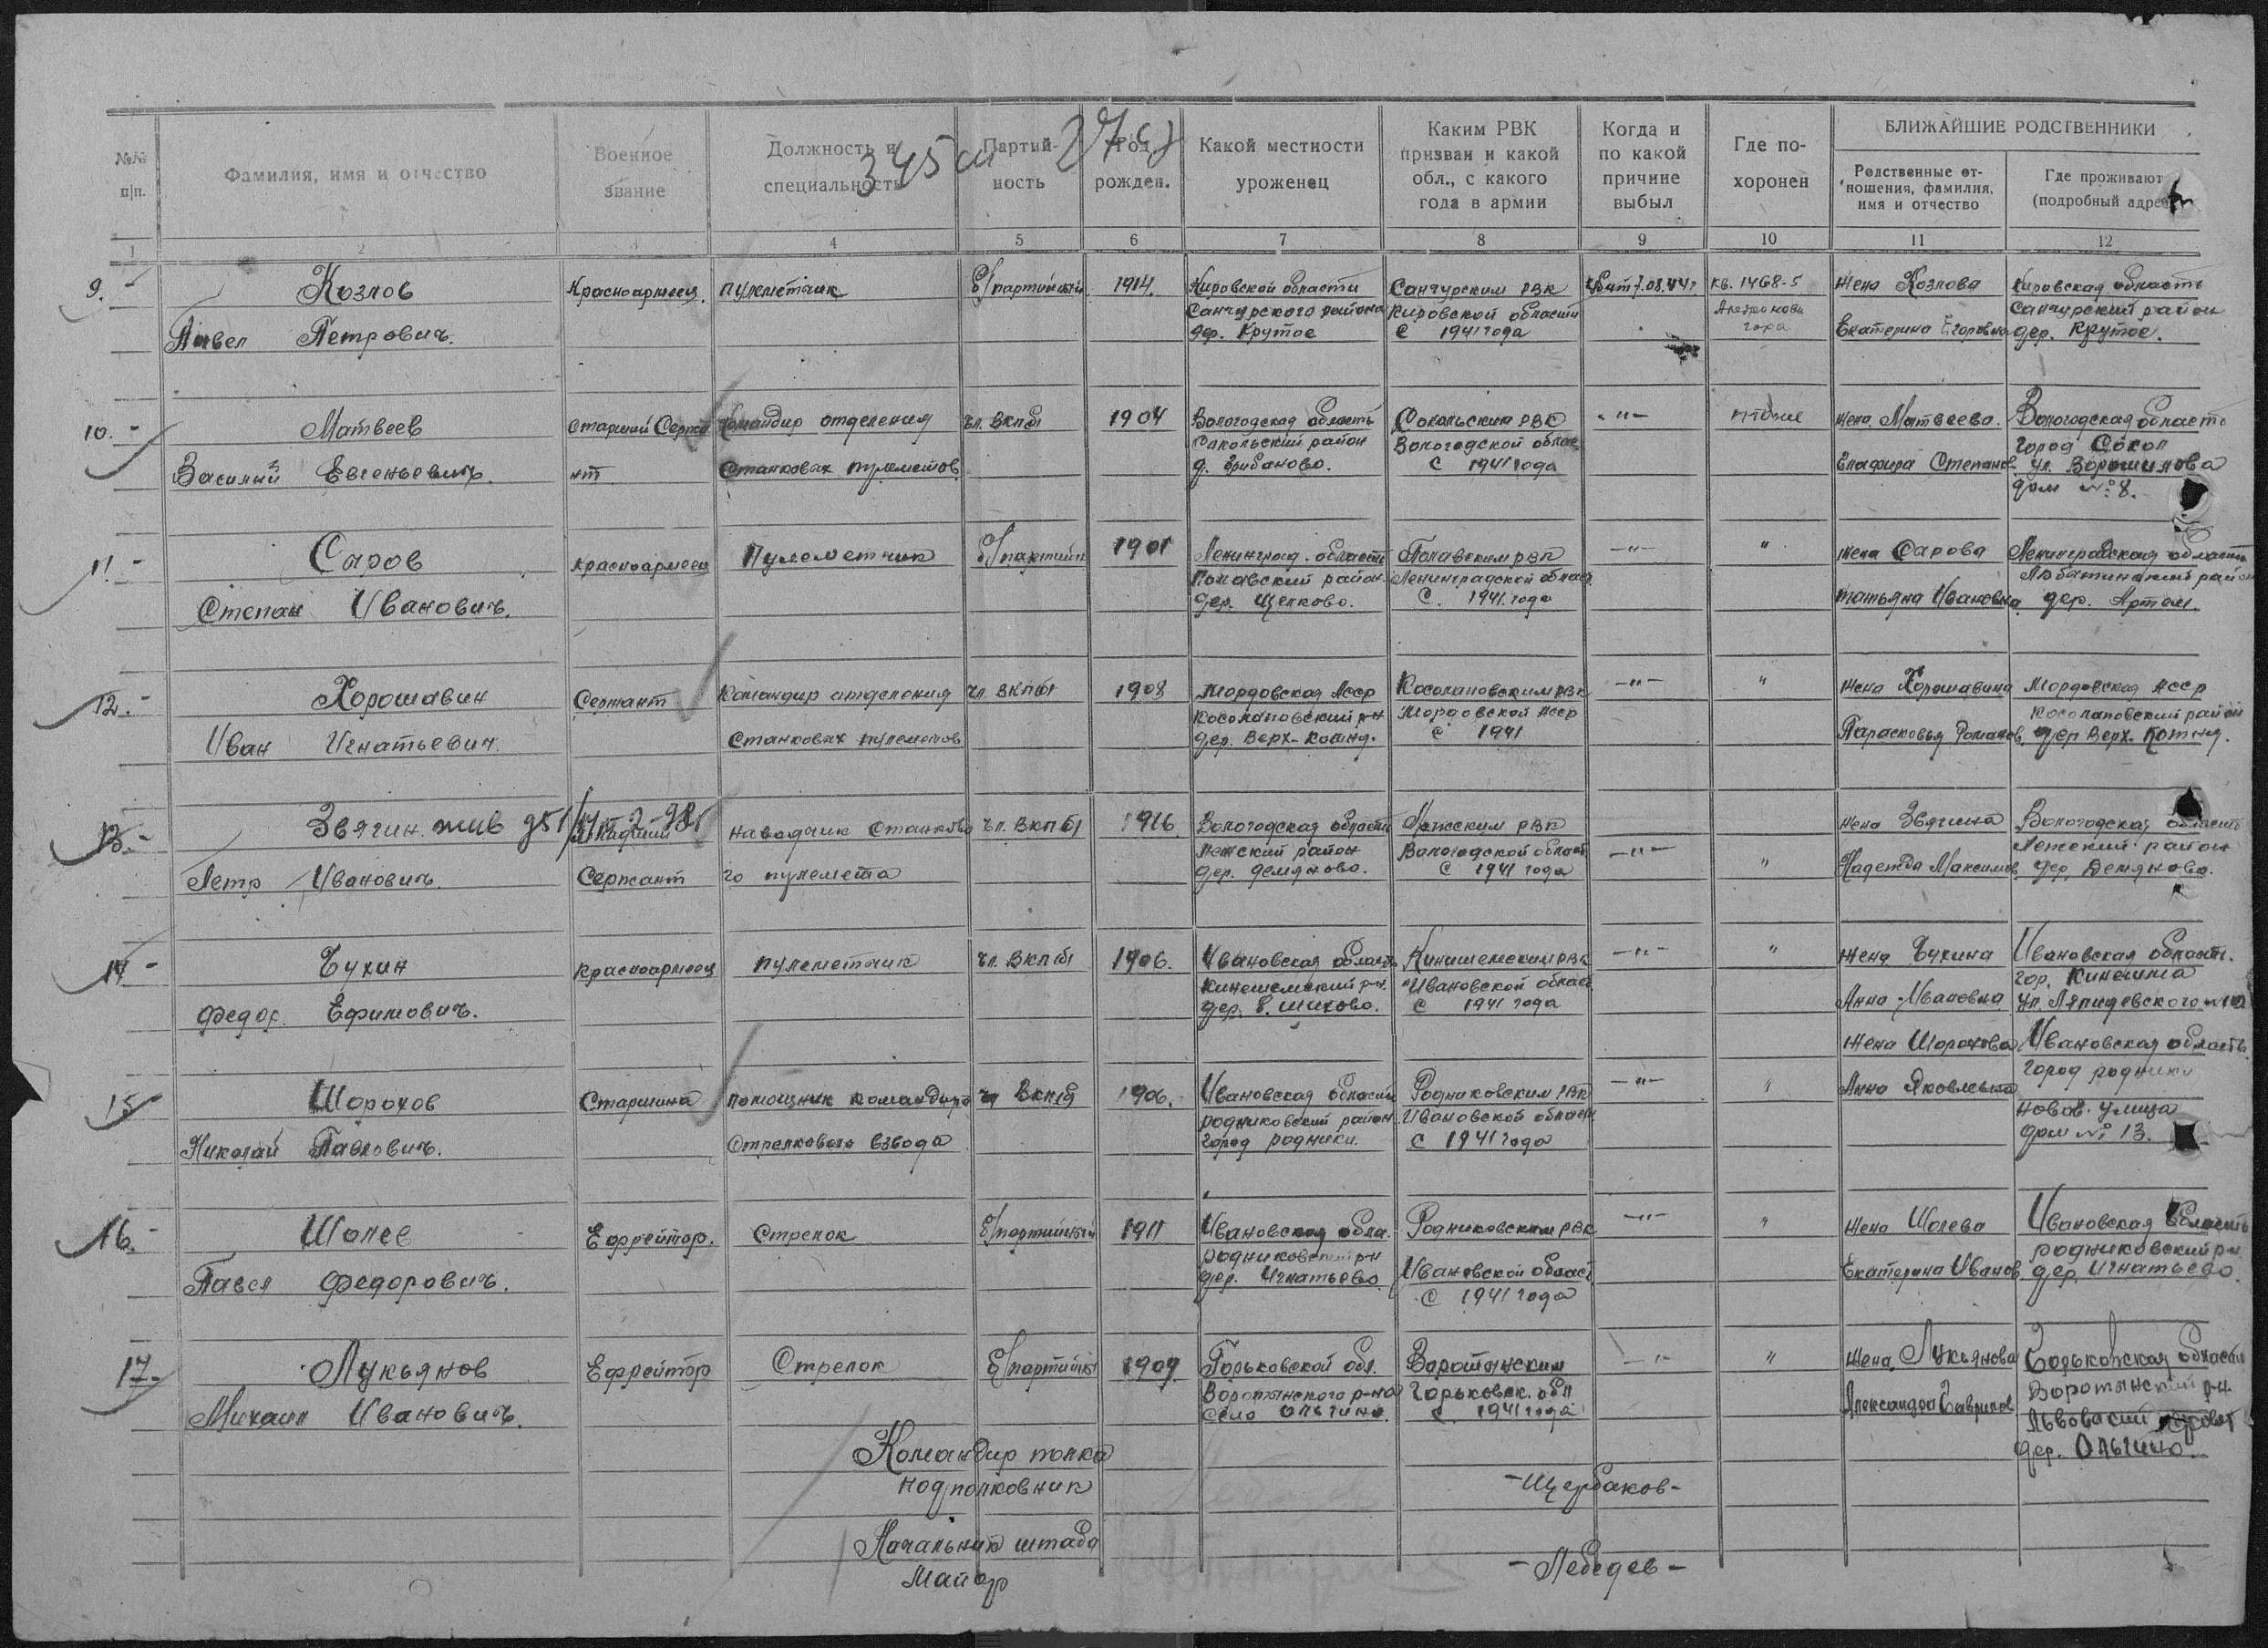 345 сд
№№ п|п.
Фамилия, имя и отчество
Военное звание
Должность и специальность
Партийность
Год рожден.
Какой местности уроженец
Каким РВК призван и какой обл., с какого года в армии
Когда и по какой причине выбыл
Где похоронен
БЛИЖАЙШИЕ РОДСТВЕННИКИ
Родственные отношения, фамилия, имя и отчество
Где проживают (подробный адрес
1 2 3 4 5 6 7 8 9 10 11 12
9. Козлов Красноармеец. пулеметчик б/партийный 1914. Кировской области Санчурским РВК Убит 7.08.44г. кв. 1468-5 жена Козлова Кировская область
Санчурского района Кировской области гора Санчурский район
Павел Петрович. дер. Крутое С 1941 года Екатерина Егоровна дер. Крутое.
10.- Матвеев Старший Сержа Командир отделения чл. ВКПб 1904 Вологодская область Сокольским РВК -"- жена Матвеева. Вологодская область
Сокольский район Вологодской облас город Сокол
Василий Евгеньевич. нт Станковых пулеметов д. Грибаново. С 1941 года Степанов. ул. Ворошилова
дом №: 8.
11- Саров Красноармеец Пулеметчик б/партийн 1901 Ленинград. область РВК -"- " жена Сарова Ленинградская область
район Ленинградской област. район
Степан Иванович. дер. Щелково. С. 1941 года татьяна Ивановна дер. Артем.
12.- Хорошавин Сержант Командир отделения чл. ВКПб 1908 Мордовская Асср Косолаповским РВК -"- " жена Хорошавина Мордовская Асср
Косолаповский р-н Мордовской Асср Косолаповский район
Иван Игнатьевич. Станковых пулеметов дер. Верх- С 1941 Парасковья Романов. дер Верх-
13.- Звягин. жив Младший наводчик Станково чл. ВКПб 1916 Вологодская область РВК жена Звягина Вологодская область
район Вологодской област -"- район
Петр Иванович. Сержант го пулемета дер. Демяново. С 1941 года " Надежда Максимов. дер. Демяново.
14- Бухин Красноармеец пулеметчик чл. ВКПб 1906. Ивановская область Кинишемским РВК -"- " жена Бухина Ивановская област.
Кинешемский р-н. Ивановской област гор. Кинешма
Федор. Ефимович. дер. С 1941 года Анна Ивановна ул. Ляпидевского
жена Шорохова Ивановская область
15- Шорохов Старшина помощник командира чл ВКПб 1906. Ивановская область Родниковским РВК -"- " Анна Яковлевна город родники
родниковский район Ивановской област новая улица
Николай Павлович. Стрелкового взвода город родники. С 1941 года дом № 13.
16.- Шолев Ефрейтор. Стрелок б/партийный 1911 Ивановская обла. Родниковским РВК -"- " жена Шолева Ивановская область
родниковский р-н родниковский р-н
Павел Федорович. дер. Игнатьево Ивановской област Екатерина Иванов. дер. Игнатьево.
С 1941 года
17- Лукьянов Ефрейтор Стрелок б/партийн 1909. Горьковской обл. Воротынским -"- " жена Лукьянова Горьковская область
Воротынского р-на Горьковск. обл Воротынский р-н
Михаил Иванович. Село Ольгино. С 1941 года Александра Гаврилов
дер. Ольгино.
Командир полка
подполковник -Щербаков-
Начальник штаба
Майор -Лебедев-